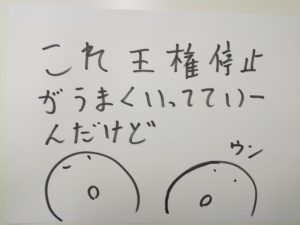 これ王権停止
がうまくいってていー
んだけど
ウン